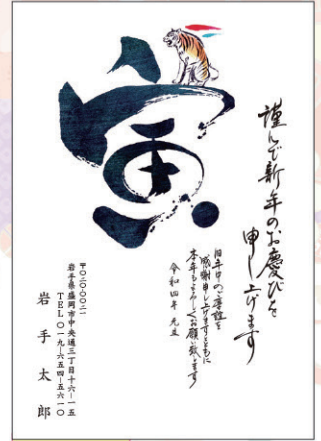 寅
謹んで新年のお慶びを
申し上げます
旧年中のご厚誼を
感謝申し上げますとともに
本年もよろしくお願い致します
令和四年 元旦
岩手県盛岡市中央通三丁目十六―一五
TEL〇一九―六五四―五六一〇
岩手太郎